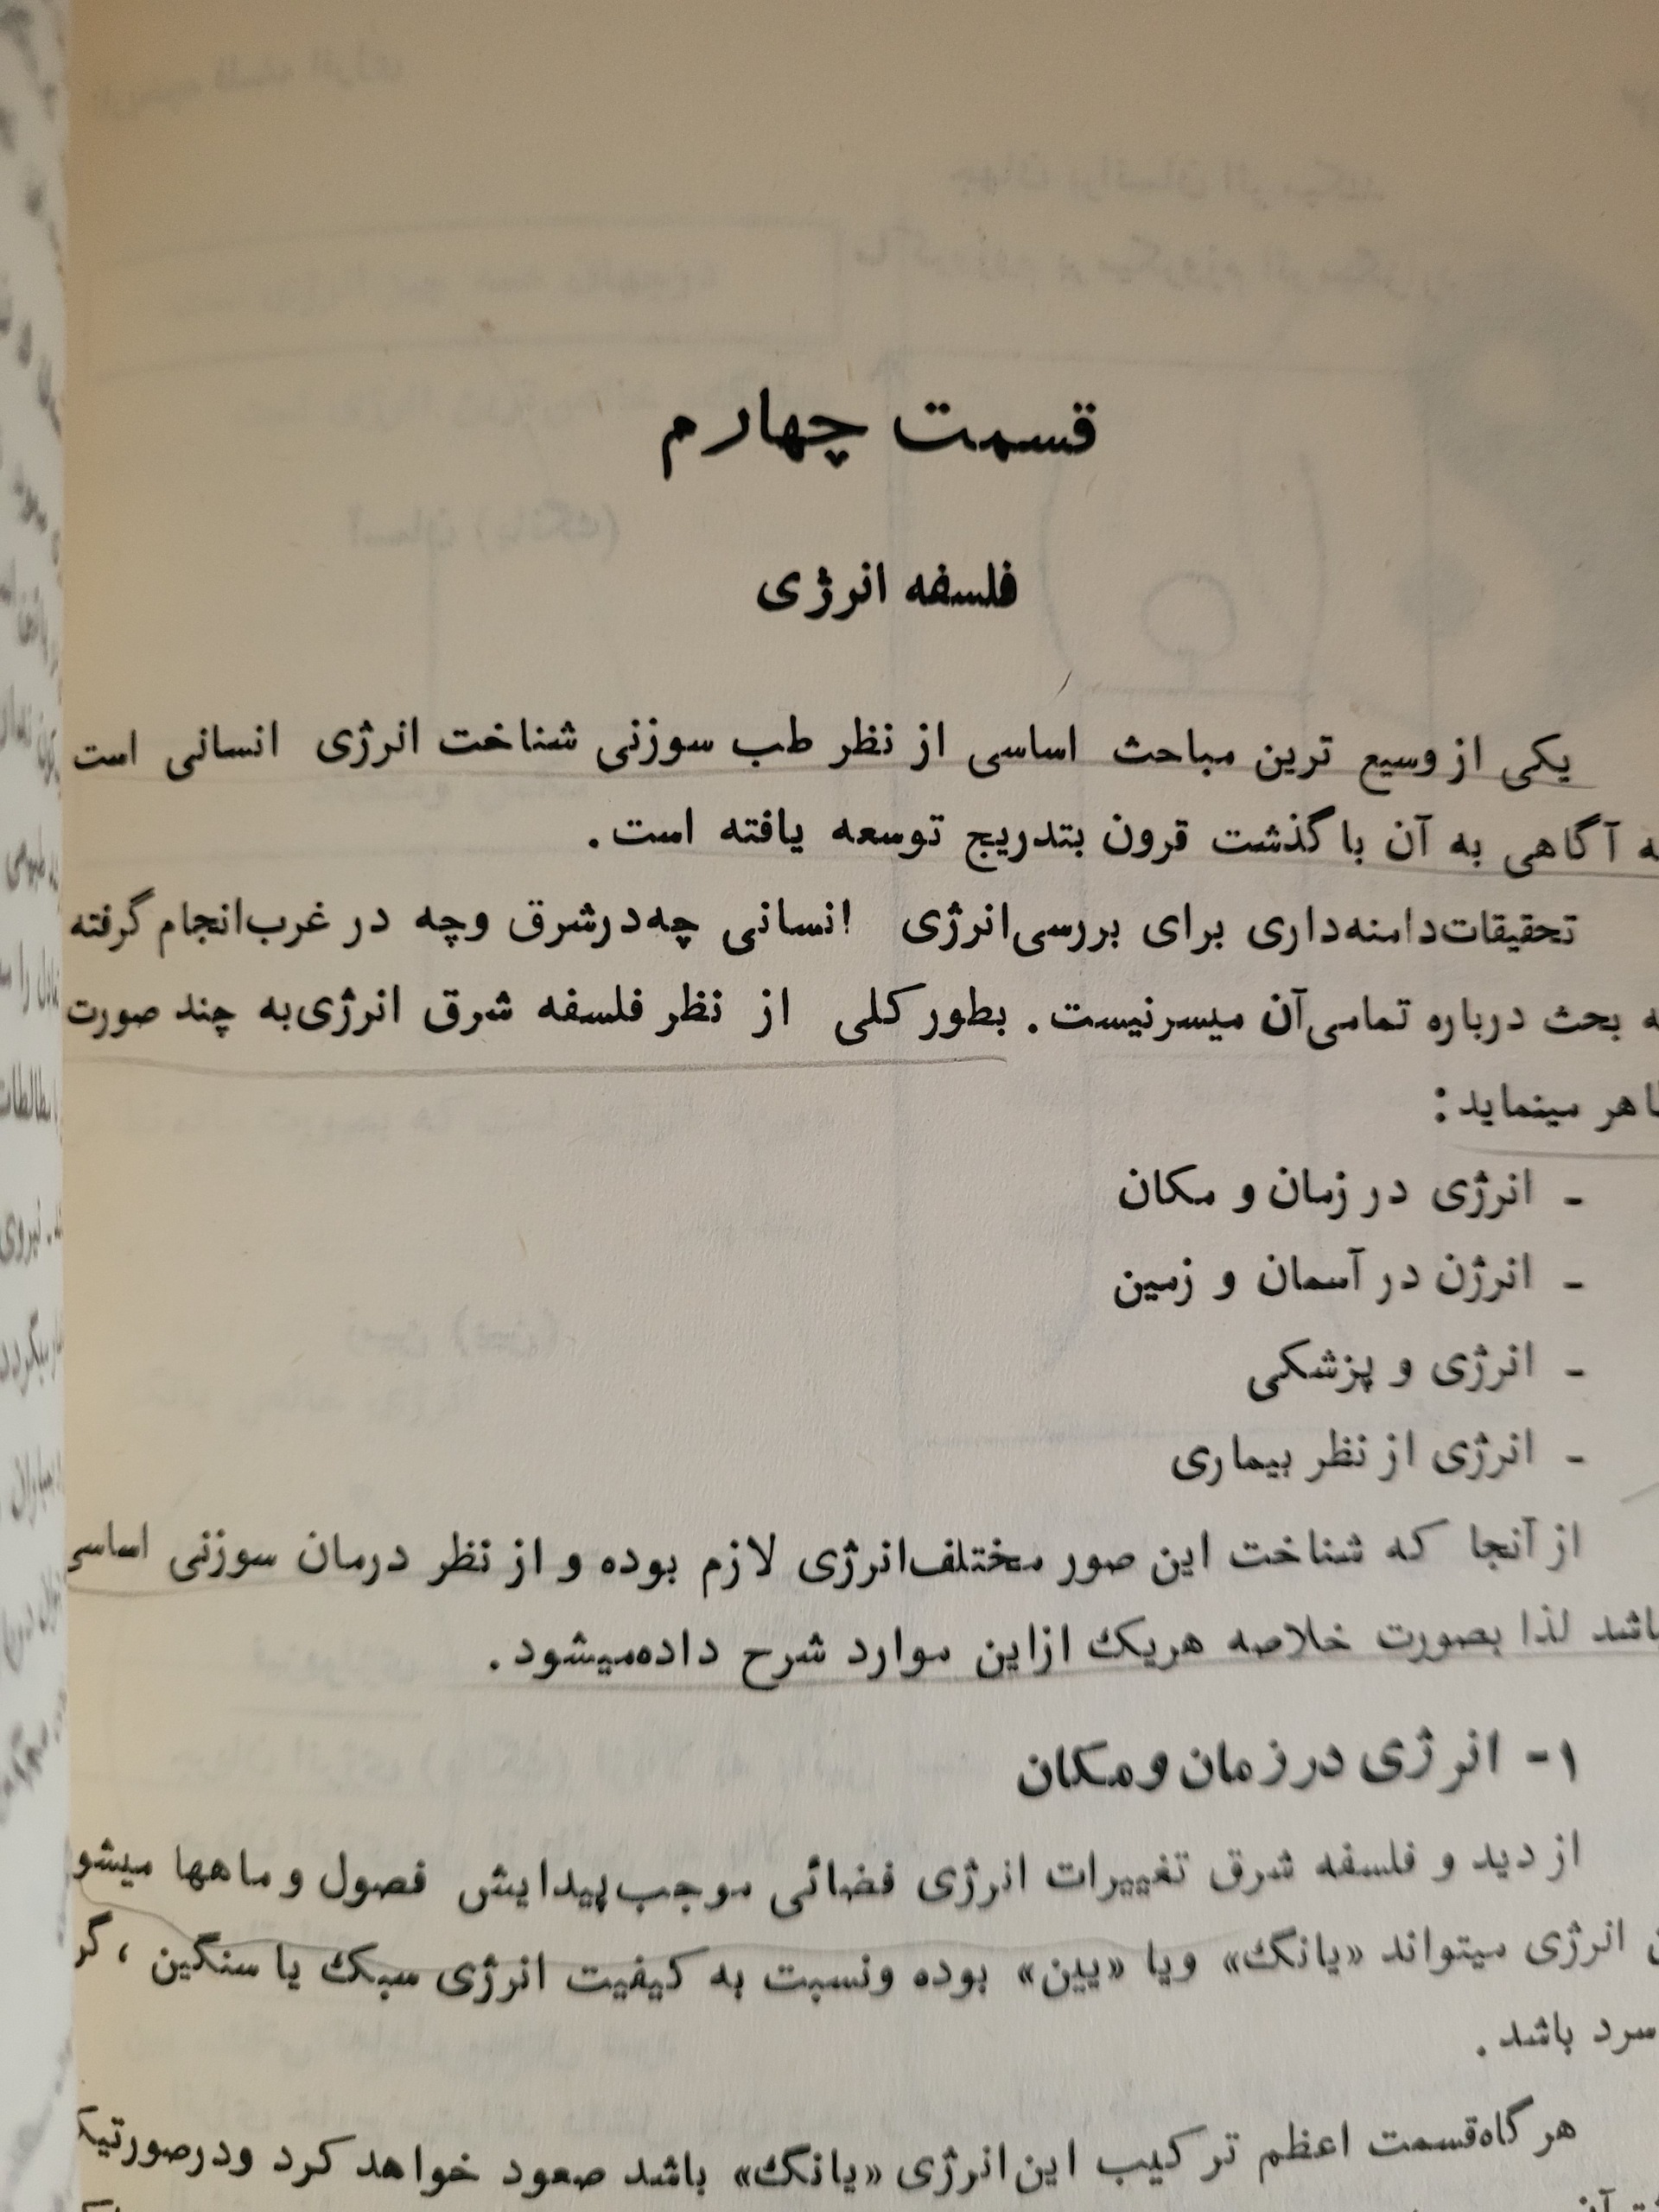 قسمت چهارم
فلسفه انرژی
یکی از وسیع ترین مباحث اساسی از نظر طب سوزنی شناخت انرژی انسانی است
آگاهی به آن با گذشت قرون بتدریج توسعه یافته است.
تحقیقات دامنه‌داری برای بررسی انرژی انسانی چه در شرق وچه در غرب انجام گرفته
بحث درباره تمامی آن میسر نیست. بطور کلی از نظر فلسفه شرق انرژی به چند صورت
مینماید:
- انرژی در زمان و مکان
- انرژن در آسمان و زمین
- انرژی و پزشکی
- انرژی از نظر بیماری
از آنجا که شناخت این صور مختلف انرژی لازم بوده و از نظر درمان سوزنی اساسی
باشد لذا بصورت خلاصه هریک ازاین موارد شرح داده میشود.
۱- انرژی در زمان و مکان
از دید و فلسفه شرق تغییرات انرژی فضائی موجب پیدایش فصول و ماهها
انرژی میتواند «یانگ» ویا «یین» بوده ونسبت به کیفیت انرژی سبک یا سنگین ،
سرد باشد.
هرگاه قسمت اعظم ترکیب این انرژی «یانگ» باشد صعود خواهد کرد